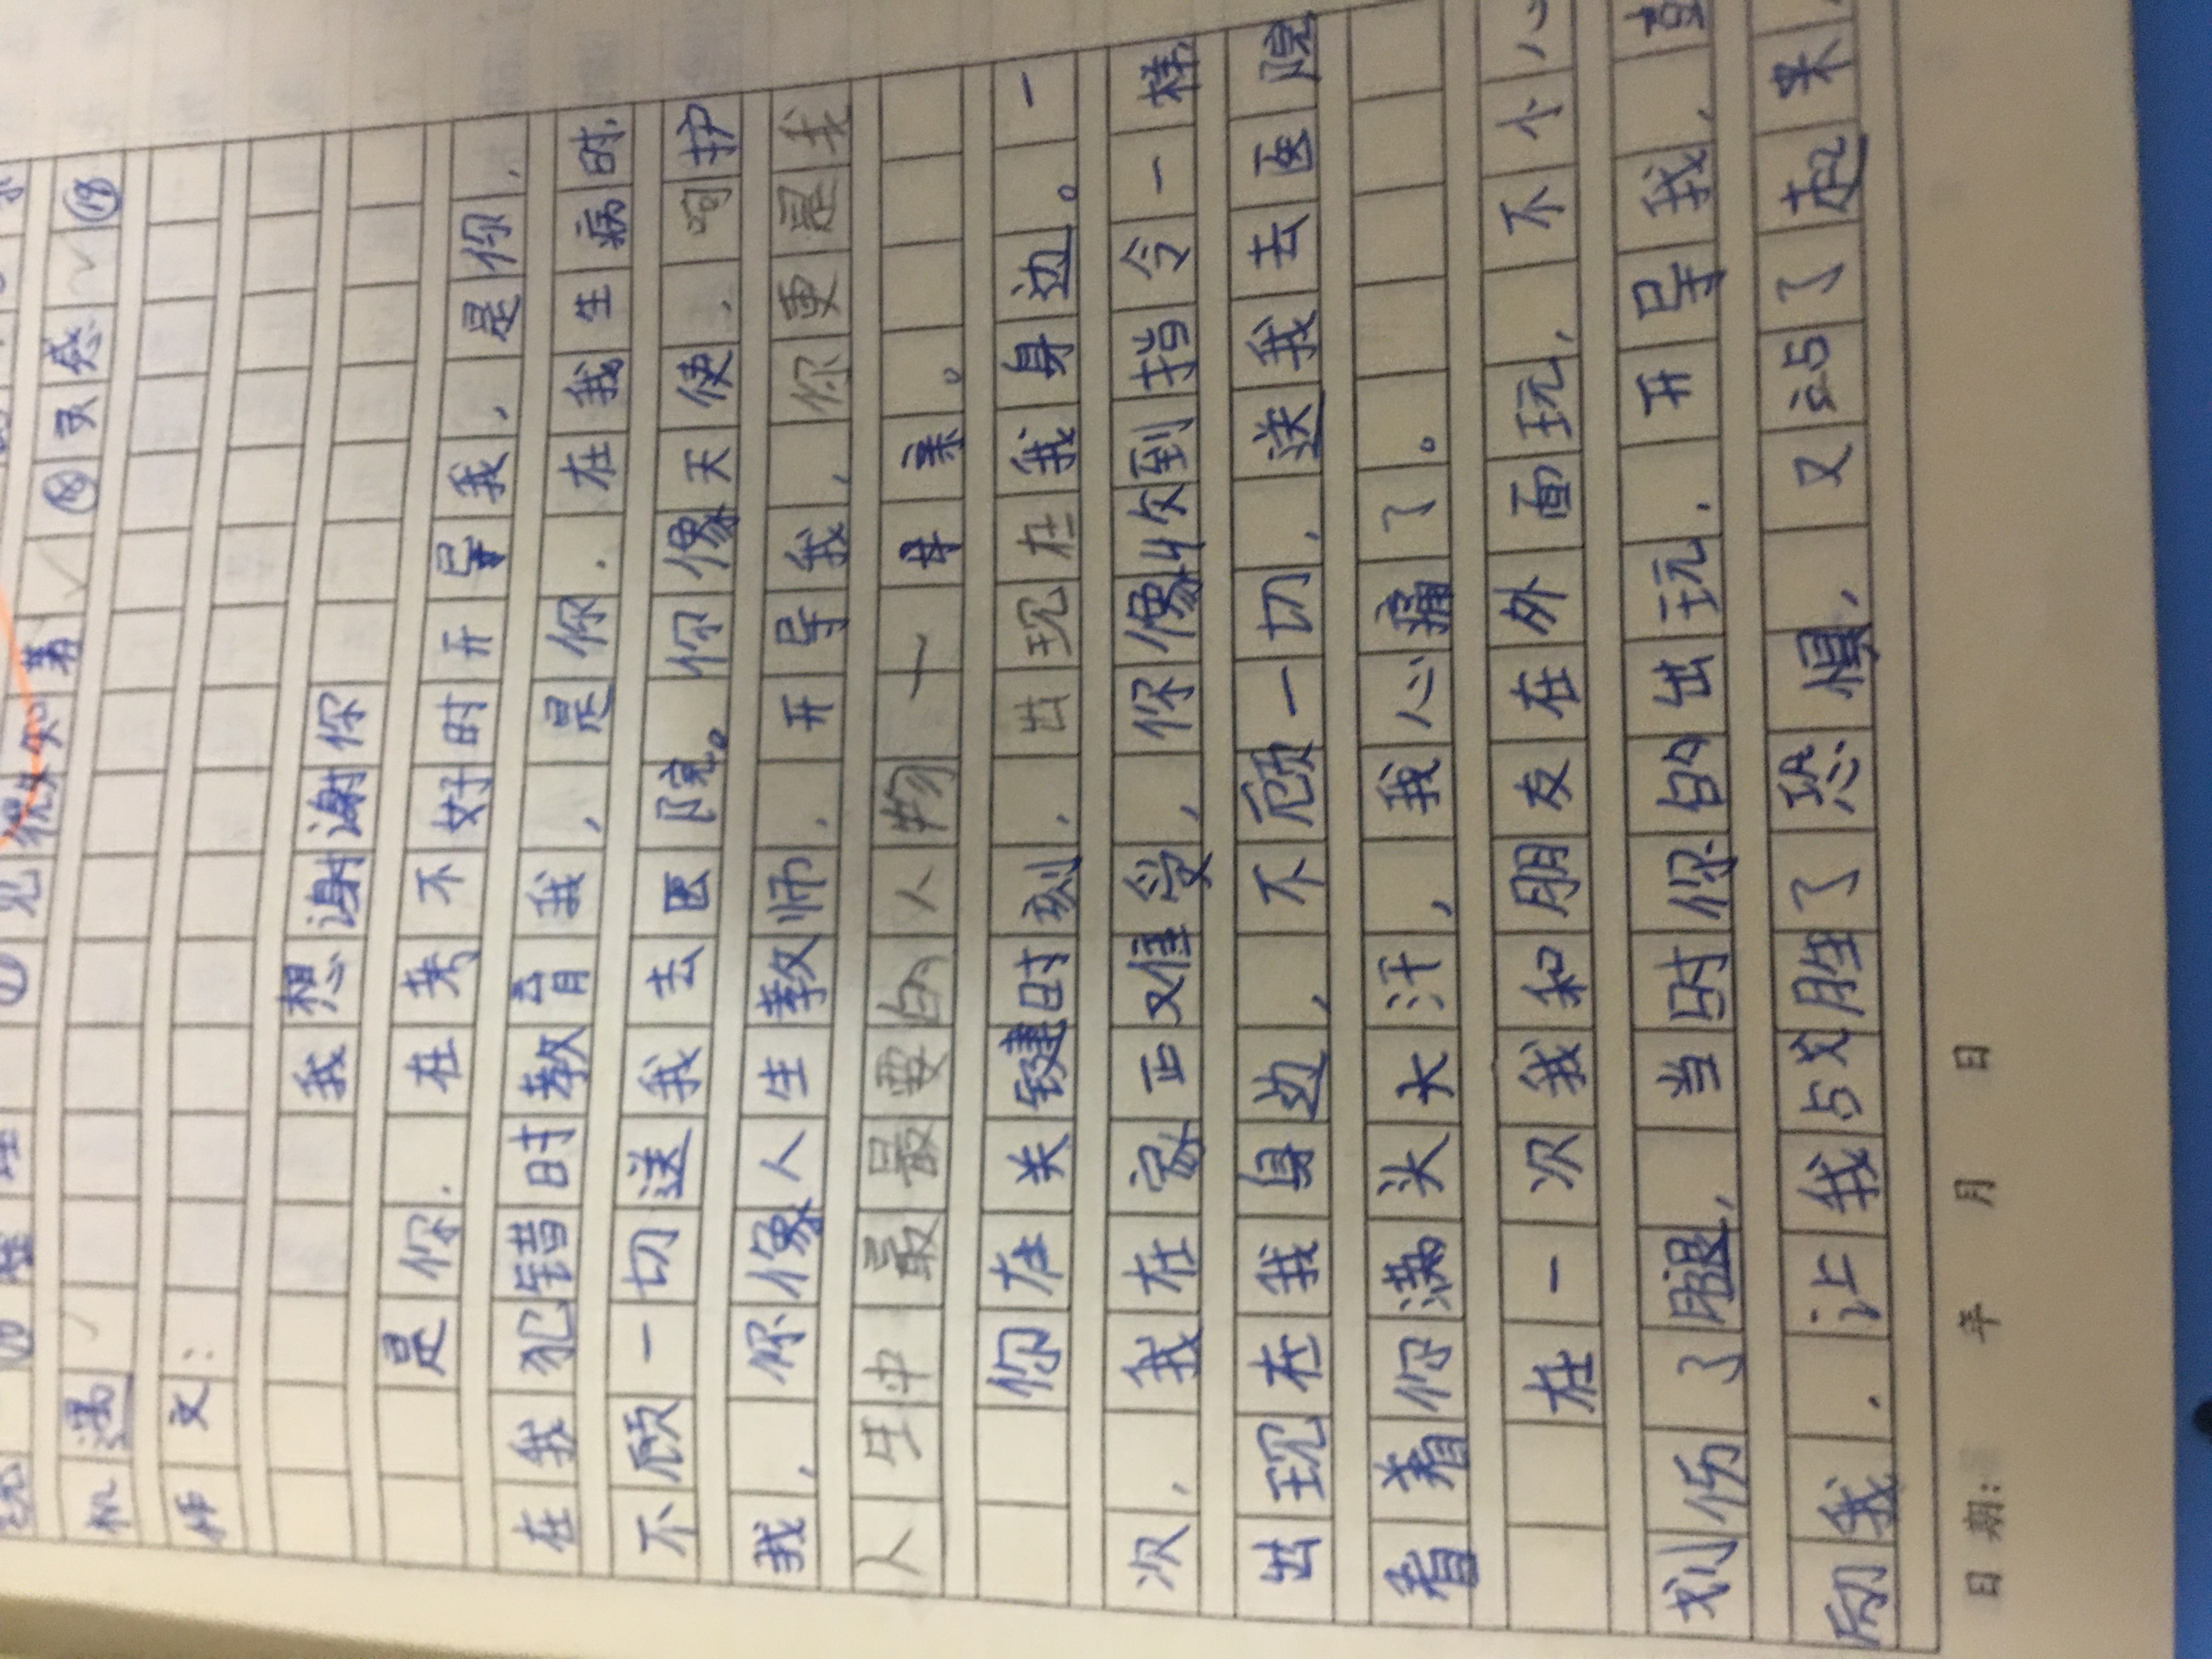 ⑱ 灵感 ✓ ⑲
机遇 ✓
作文：
我想谢谢你
是你，在考不好时开导我，是你，
在我犯错时教育我，是你，在我生病时
不顾一切送我去医院。你像天使，呵护
我，你像人生教师，开导我，你更是我
人生中最最要的人物——母亲。
你在关键时刻，出现在我身边。一
次，我在家正难受，你像收到指令一样
出现在我身边，不顾一切，送我去医院
看着你满头大汗，我心痛了。
在一次我和朋友在外面玩，不小心
划伤了腿，当时你的出现，开导我，
励我，让我占战胜了恐惧，又站了起来
日期： 年 月 日